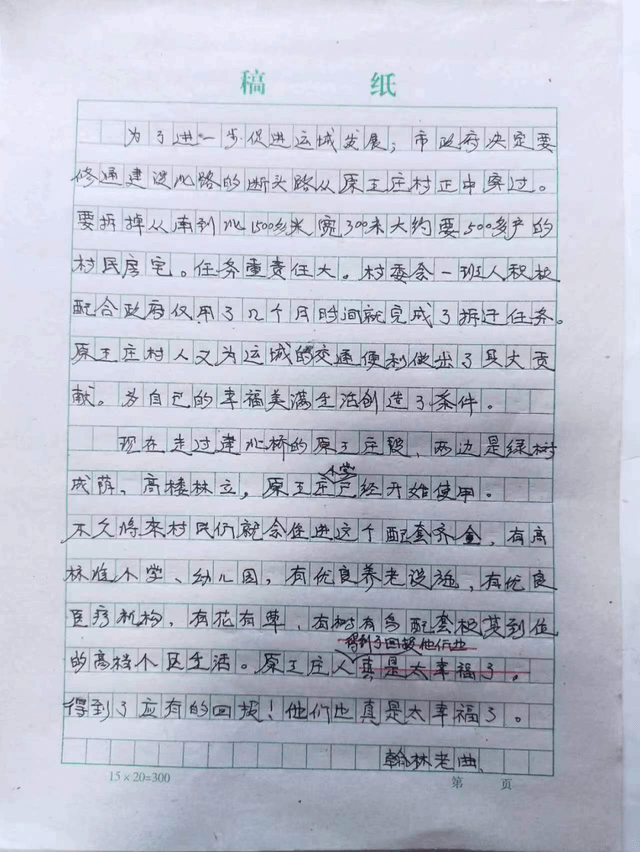 稿 纸
为了进一步促进运城发展，市政府决定要
修通建设北路的断头路从原王庄村正中穿过。
要拆掉从南到北1500多米宽300米大约要500多户的
村民房宅。任务重责任大。村委会一班人积极
配合政府仅用了几个月时间就完成了拆迁任务。
原王庄村人又为运城的交通便利做出了具大贡
献。为自己的幸福美满生活创造了条件。
现在走过建北桥的原王庄段、两边是绿树
成荫、高楼林立，原王庄小学已经开始使用。
不久将来村民们就会住进这个配套齐全，有高
标准小学、幼儿园，有优良养老设施，有优良
医疗机构，有花有草，有树有鸟配套极其到位
得到了回报他们也
的高档小区生活。原王庄人真是太幸福了，
得到了应有的回报！他们也真是太幸福了。
翰林老曲
15×20=300 第 页